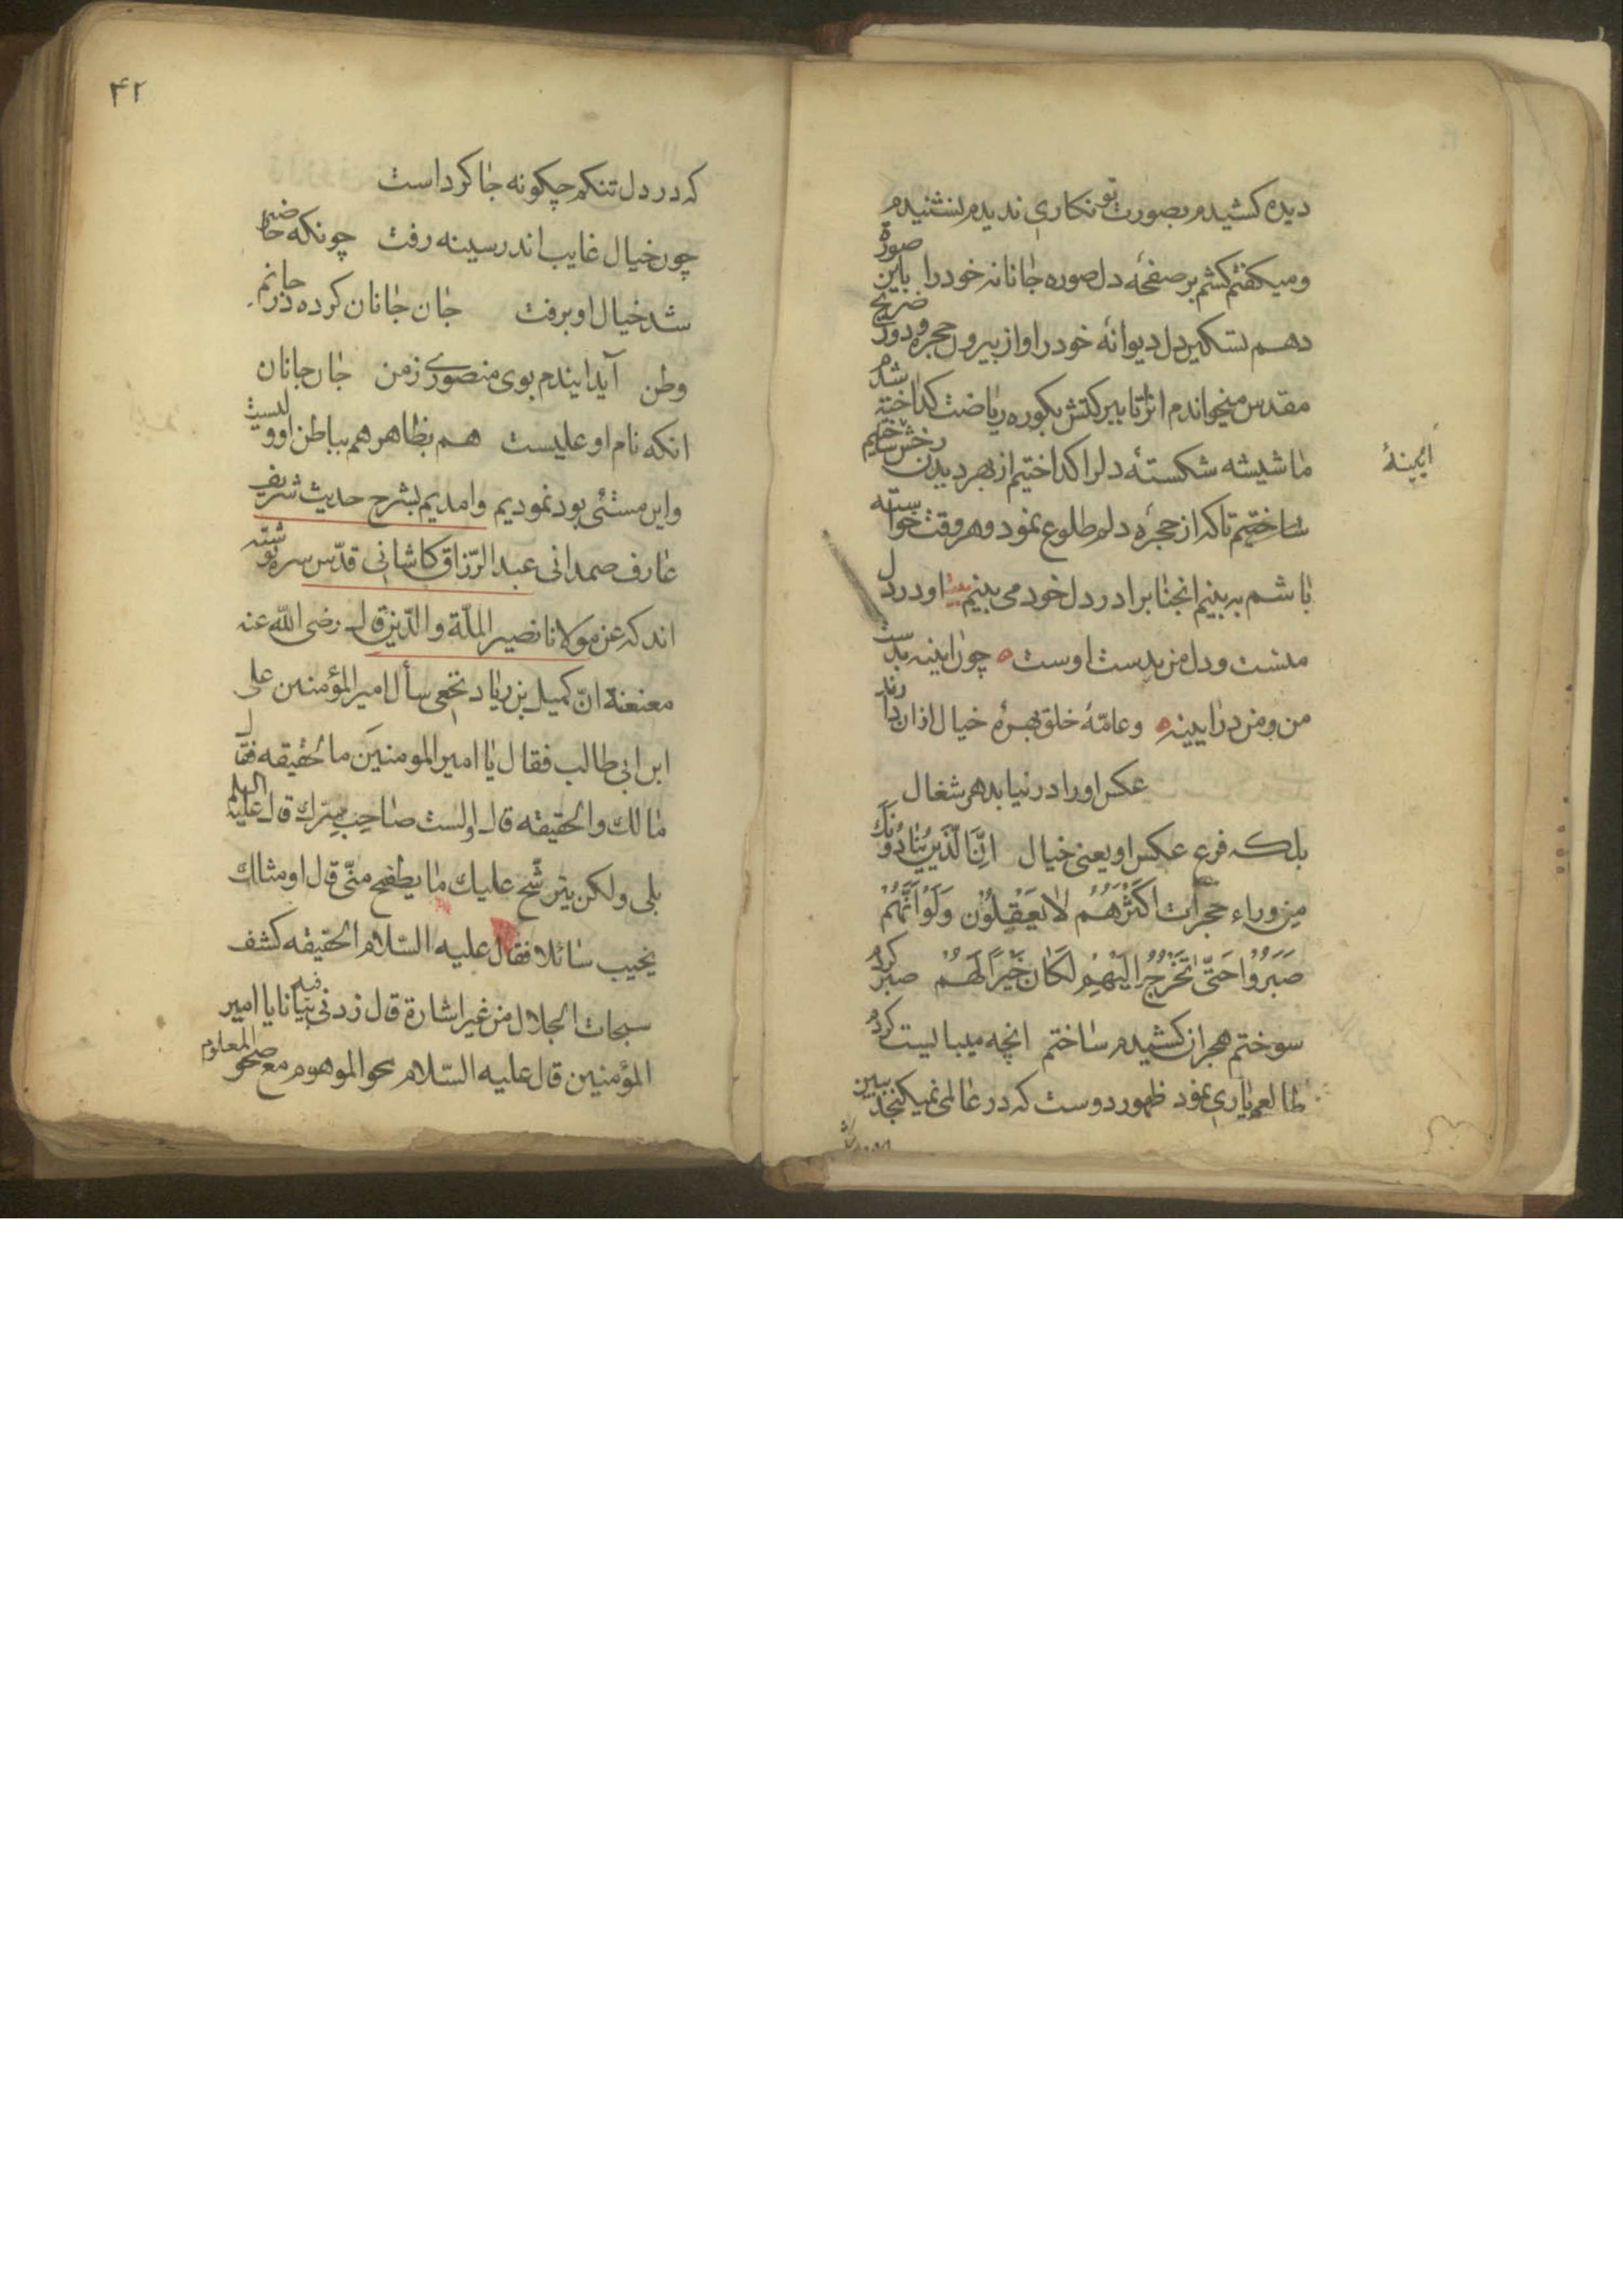 دیده کشیدم بصورت تو نکاری ندیدم نشنیدم
ومیکفتم کشم بر صفحهٔ دل صوره جانانه خود را باین صورة
دهم تسکین دل دیوانهٔ خود را و از بیرون حجره و دور ضریح
مقدس میخواندم اثر تا ببرکتش بکوره ریاضت کداخته شدم
ما شیشه شکستهٔ دلرا کداختیم از بهر دیدن رخش
آیینهٔ
ساختیم تا که از حجرهٔ دلم طلوع نمود و هر وقت خواسته
باشم به بینم انجنابرا در دل خود می بینم او در دل
منست ودل من بدست اوست ه چون آینه بدست
من و من در آیینه ه وعامّهٔ خلق بهرهٔ خیال از ان دارند
عکس او را در نیابد هر شغال
بلکه فرع عکس او یعنی خیال اِنَّ الَّذینَ یُنادُونَكَ
مِن وراء حجرات اَکثَرُهُم لا یَعقِلُون وَلَو اَنَّهُم
صَبَرُوا حَتّی تَخرُجَ اِلَیهِم لَکانَ خَیراً لَهُم صبر کردم
سوختم هجران کشیدم ساختم انچه میبایست کردم
طالعم یاری نمود ظهور دوست که در عالمی نمیکنجد ببین
۴۲
که در دل تنکم چکونه جا کرداست
چون خیال غایب اندر سینه رفت چونکه حاضر
شد خیال او برفت جان جانان کرده در جانم
وطن آید ایندم بوی منصوری زمن جان جانان
انکه نام او علیست هم بظاهر هم بباطن او ولیست
واین مستثی بود نمودیم وامدیم بشرح حدیث شریف
عارف صمدانی عبد الرّزاق کاشانی قدّس سره نوشته
اند که عن مولانا نصیر الملّة والدّین قال رضی الله عنه
معنعنة انّ کمیل بن زیاد نخعی سأل امیر المؤمنین علی
ابن ابی طالب فقال یا امیر المومنین ما الحقیقه فقال
مالك والحقیقه قال اولست صاحب سِرّك قال علیه السلم
بلی ولکن یترشّح علیك ما یطفح منّی قال او مثالك
یخیب سائلا فقال علیه السّلام الحقیقه کشف
سبحات الجلال من غیر اشارة قال زدنی فیه بیانا یا امیر
المؤمنین قال علیه السّلام محو الموهوم مع صحو المعلوم